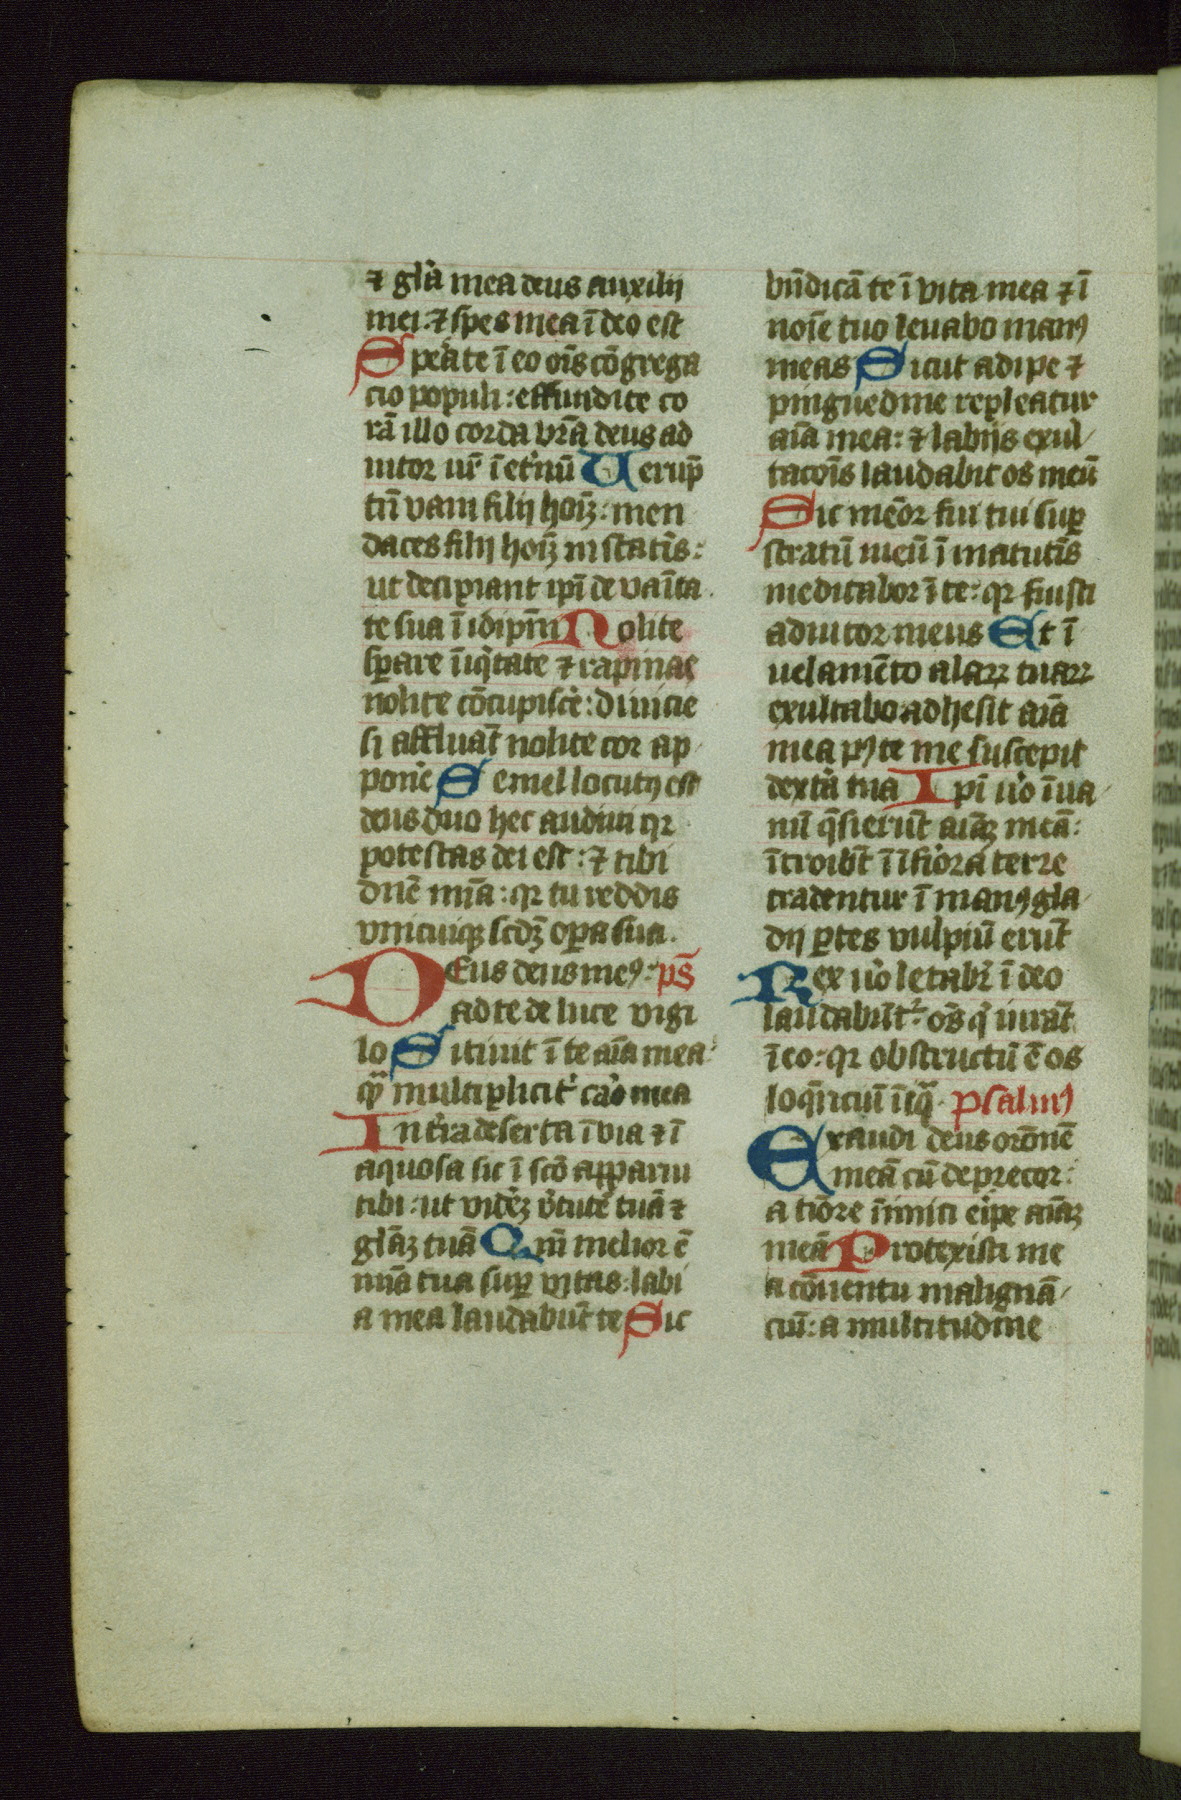 ⁊ gl̄a mea deus auxilij
mei: ⁊ spes mea ī deo est
Sperate ī eo oīs cōgrega
cio populi: effundite co
rā illo corda vrā deus ad
iutor nr̄ ī etͥnū Uerūp̄
tn̄ vani filij hoīꝫ: men
daces filij hoīꝫ in stateris:
ut decipiant ip̄i de vaīta
te sua ī idip̄m Nolite
sꝑare īiqͥtate ⁊ rapinas
nolite cōcupisce̾: diuicie
si affluāt nolite cor ap
pone̾ Semel locutꝰ est
deus duo hec audiui qꝛ
potestas dei est: ⁊ tibi
dn̄e mīa: qꝛ tu reddis
vnicuiqꝫ scd̄ꝫ oꝑa sua.
DEus deus meꝰ: ps̄
ad te de luce vigi
lo Sitiuit ī te aīa mea:
qᷓ multiplicit̾ caͦ mea
In t̾ra deserta īuia ⁊ ī
aquosa sic ī scō apparui
tibi: ut videꝫ v̾tutē tuā ⁊
gl̄aꝫ tuā Qm̄ melior ē
mīa tua suꝑ vitas: labi
a mea laudabūt te Sic
bn̄dicā te ī vita mea ⁊ ī
noīe tuo leuabo manꝰ
meas Sicut adipe ⁊
pinguedine repleatur
aīa mea: ⁊ labijs exul
tacōis laudabit os meū
Sic mēor fui tui suꝑ
stratū meū ī matutīs
meditabor ī te: qꝛ fuisti
adiutor meus Et ī
uelamēto alaꝝ tuaꝝ
exultabo adhesit aīa
mea pꝰ te me suscepit
dext̾a tua Ip̄i u̾o īua
nū q̄sierūt aīaꝫ meā:
ītroibūt ī īfiora terre
tradentur ī manꝰ gla
dij ꝑtes vulpiū erūt
Rex u̾o letabr̾ ī deo
laudabūt̾: oēs qͥ iurāt
ī eo: qꝛ obstructū ē os
loq̄nciū īiqᷓ. psalmꝰ
Exaudi deus orōnē
meā cū deprecor:
a tiōre īimici eripe aīaꝫ
meā Protexisti me
a cōuentu malignā
ciū: a multitudine